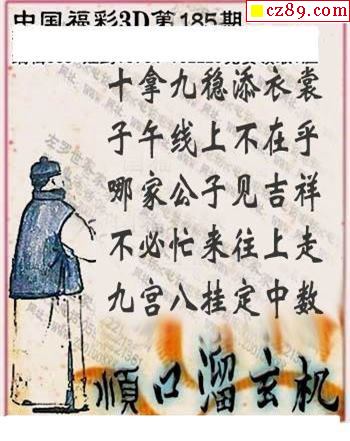 cz89.com
中国福彩3D第185期
十拿九稳添衣裳
子午线上不在乎
哪家公子见吉祥
不必忙来往上走
九宫八挂定中数
順口溜玄机